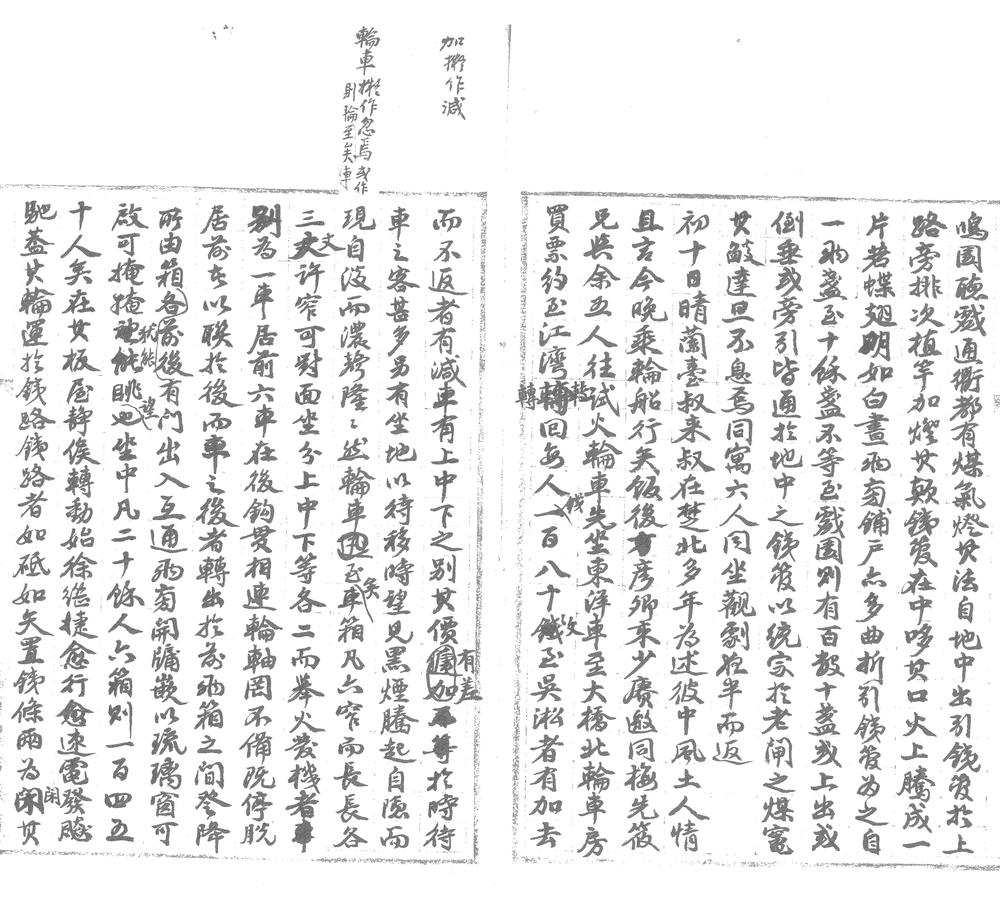 鳴園聽戲通衢都有煤氣燈其法自地中出引鐵管於上
路旁排次植竿加燈其顛鐵管在中哆其口火上騰成一
片若蝶翅明如白晝兩旁鋪戶亦多曲折引鐵管為之自
一兩盞至十餘盞不等至戲園則有百數十盞或上出或
倒垂或旁引皆通於地中之鐵管以統宗於老閘之煤竈
其燄達旦不息焉同寓六人同坐觀劇夜半而返
初十日晴蘭臺叔來叔在楚北多年為述彼中風土人情
且言今晚乘輪船行矣飯後彥卿來少賡邀同梅先筱
兄與余五人往試火輪車先坐東洋車至大橋北輪車房
買票約至江灣轉回每人錢一百八十文至吳淞者有加去
而不返者有減車有上中下之別其價有差加等於時待
車之客甚多另有坐地以待移時望見黑煙騰起自隱而
現自淡而濃聲隆隆然輪車至矣車箱凡六窄而長長各
三丈許窄可對面坐分上中下等各二而舉火發機者
別為一車居前六車在後鈎貫相連輪軸罔不備既停脫
居前者以聯於後而車之後者轉出於前兩箱之間登降
所由箱各前後有門出入互通兩旁開牖嵌以琉璃窗可
啟可掩掩就能眺望坐中凡二十餘人六箱則一百四五
十人矣在其板屋靜俟轉動始徐繼捷愈行愈速電發飈
馳蓋其輪運於鐵路鐵路者如砥如矢置鐵條兩為閑其
加擬作減
輪車擬作忽焉或作
則輪至矣車